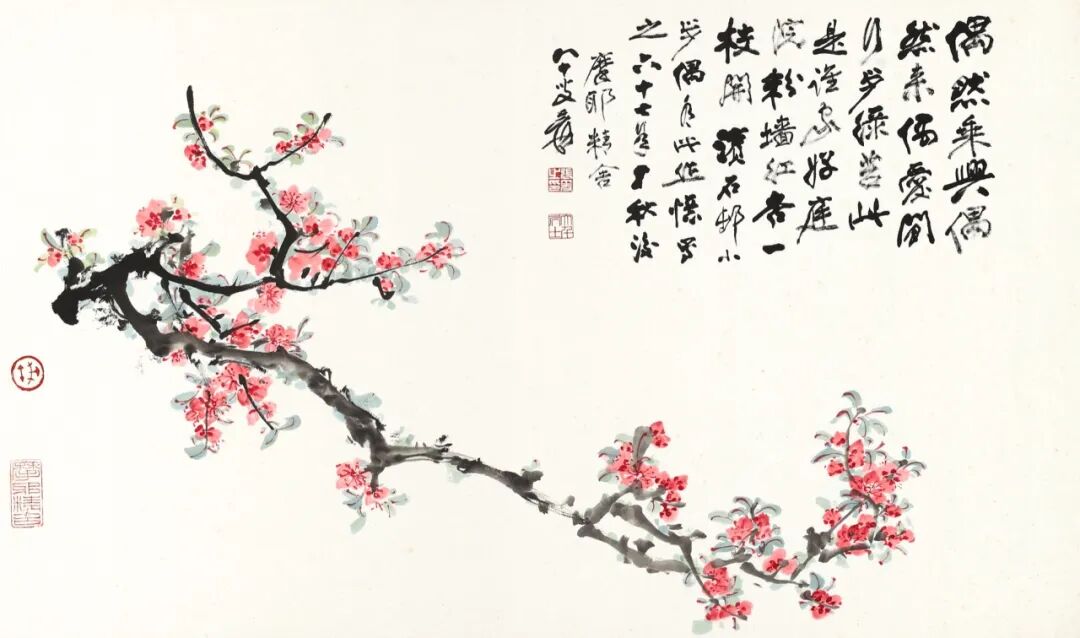 偶然乘興偶
然來偶愛閒
行步綠苔此
是誰家好庭
院粉墻紅杏一
枝開 石邨小
步偶有此作寫
之六十七年秋後
摩耶精舍
八十叟爰
大千居士
摩耶精舍